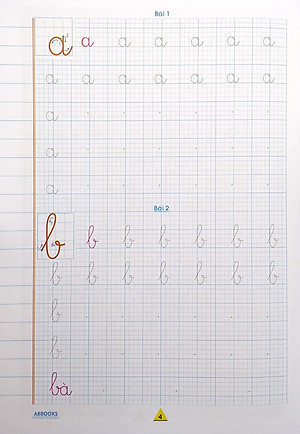 Bài 1
a a a a a a a
a a a a a a a
a
a
a
Bài 2
b b b b b b b
b b b b b b b
b
b
bà
ABBOOKS
4